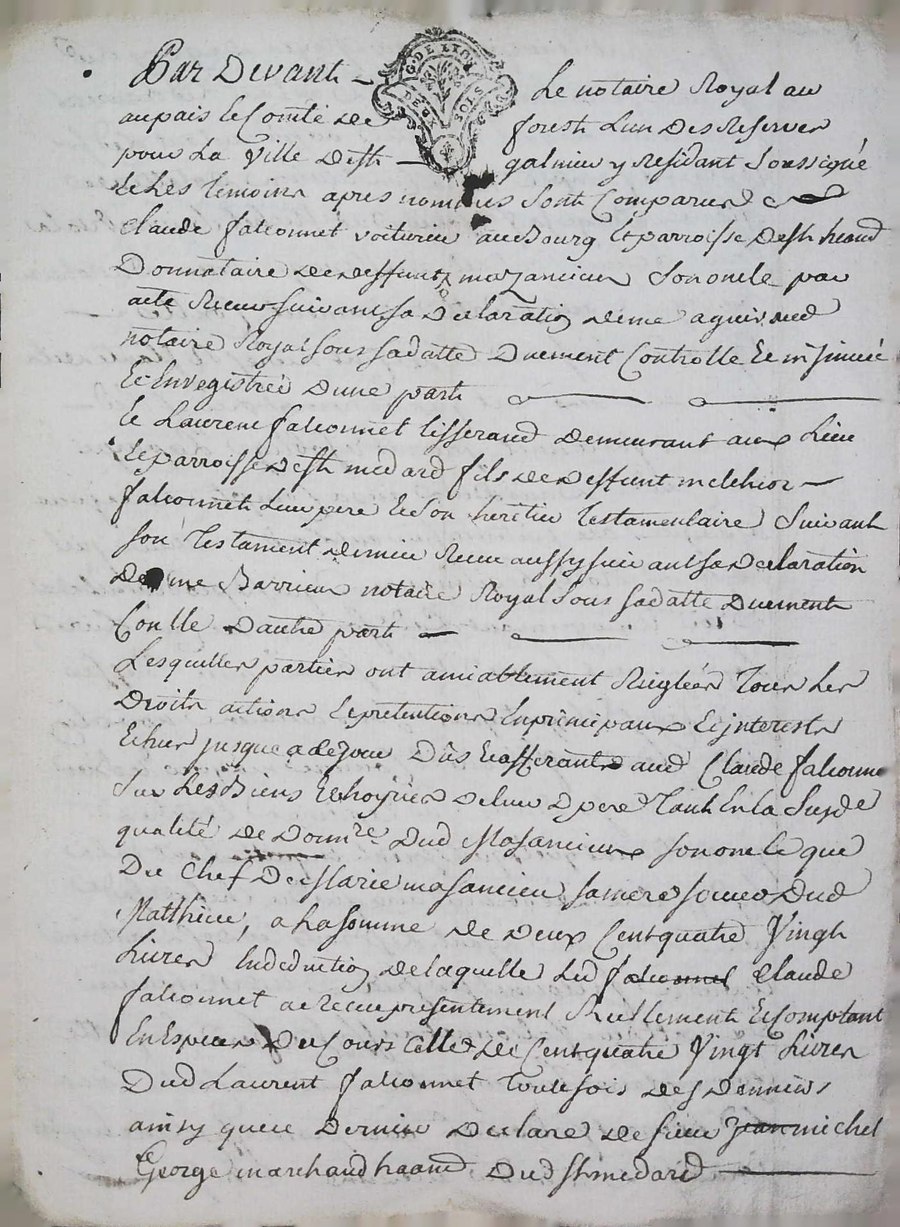 Par Devant Le notaire Royal au
au pais & Comté de forest L'un Des Reservés
pour La Ville De St galmier y Residant Soussigné
& Les temoins apres nommés Sont Comparus
Claude falconnet voiturier au Bourg Et parroisse De St heand
Donnataire de deffunt mazancieu Son oncle par
acte Receu suivant sa Declaration de me aguiraud
notaire Royal sous sa datte Duement Controllé Et insinué
Et Enregistréé D'une part
Et Laurent falconnet tisserand demeurant aux Lieu
& parroisse de St medard fils de deffunt melchior
falconnet Luy pere & Son heritier testamentaire Suivant
son testament dernier Receu aussy suivant sa Declaration
De me Barrieu notaire Royal Sous sa datte Duement
Conllé D'autre part
Lesquelles parties ont amiablement Reigléés Tous Les
Droits actions & pretentions En principaux & interests
Echus jusque a ce jour Dus & afferants aud Claude falconne
Sur Les Biens & hoyries de leur d pere Tant En la Susde
qualité de Donnre Dud Masancieux son oncle que
Du Chef De Marie masancieu sa mere soeur Dud
Matthieu, a La somme de deux Cent quatre Vingt
Livres En deduction de laquelle Led falconnet Claude
falconnet a receu presentement Reellement & Comptant
En Especes Du Cours Celle de Cent quatre Vingt Livres
Dud Laurent falconnet toutefois des deniers
ainsy que Ce Dernier declare de sieur jean michel
George marchand Dud St medard